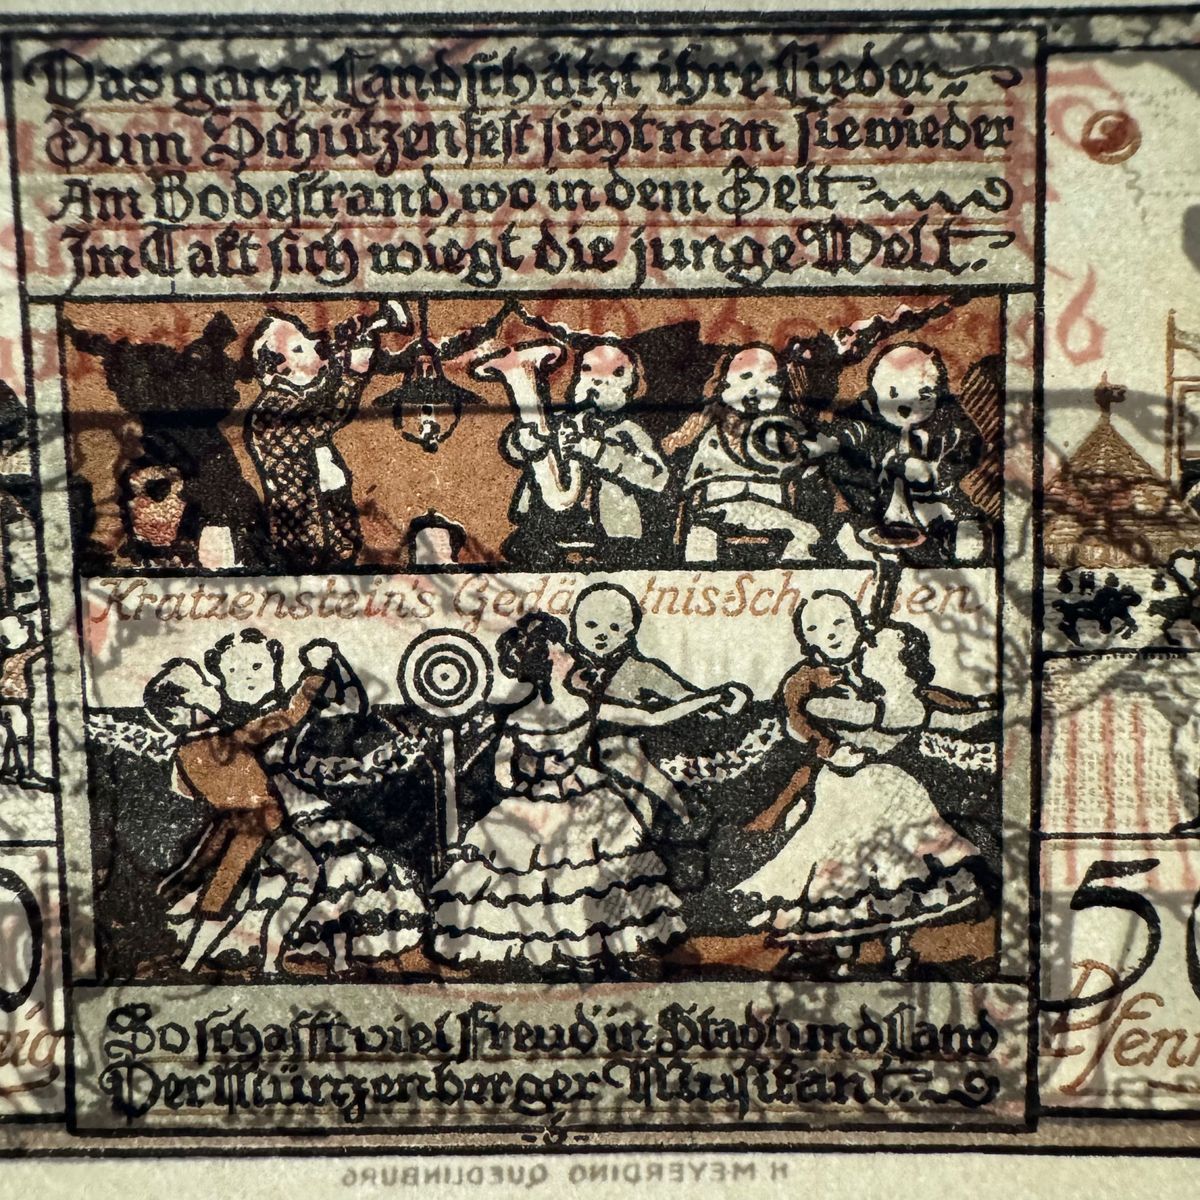 Das ganze Land schätzt ihre Lieder
Zum Schützenfest sieht man sie wieder
Am Bodestrand, wo in dem Zelt
Im Takt sich wiegt die junge Welt.
Kratzenstein's Gedä tnis-Sch sen
So schafft viel Freud' in Stadt und Land
Der Münzenberger Musikant.
50
Pfenn
nig
H. MEYERDING QUEDLINBURG